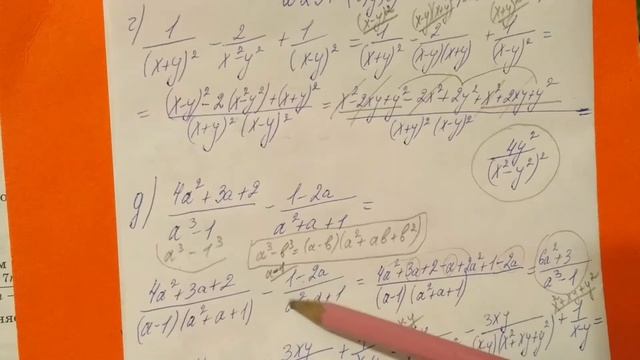 г) 1/(x+y)² - 2/(x²-y²) + 1/(x-y)² = 1/(x+y)² - 2/((x-y)(x+y)) + 1/(x-y)² =
= ((x-y)² - 2(x²-y²) + (x+y)²)/((x+y)² (x-y)²) = (x²-2xy+y²-2x²+2y²+x²+2xy+y²)/((x+y)² (x-y)²) =
4y²/(x²-y²)²
д) (4a²+3a+2)/(a³-1) - (1-2a)/(a²+a+1) =
a³-1³
a³-b³=(a-b)(a²+ab+b²)
(4a²+3a+2)/((a-1)(a²+a+1)) - (1-2a)/(a²+a+1) = (4a²+3a+2-a+2a²+1-2a)/((a-1)(a²+a+1)) = (6a²+3)/(a³-1)
3xy
- 3xy/((x-y)(x²+xy+y²)) + 1/(x-y) =